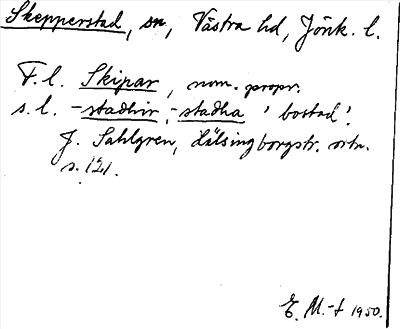 Skepperstad, sn, Västra hd, Jönk. l.
F. l. Skipar, nom. propr.
s. l. -stadhir, -stadha 'bostad'.
J. Sahlgren, Hälsingborgstr. ortn.
s. 121.
E. M.-t 1950.